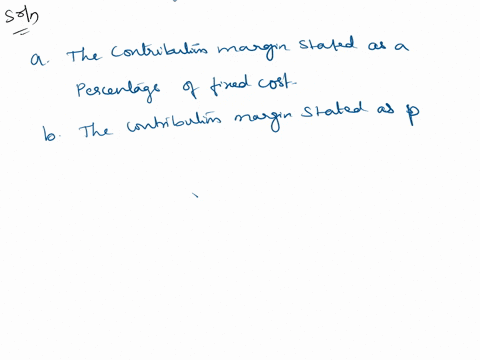 Soln
a. The contribution margin stated as a
Percentage of fixed cost.
b. The contribution margin stated as p